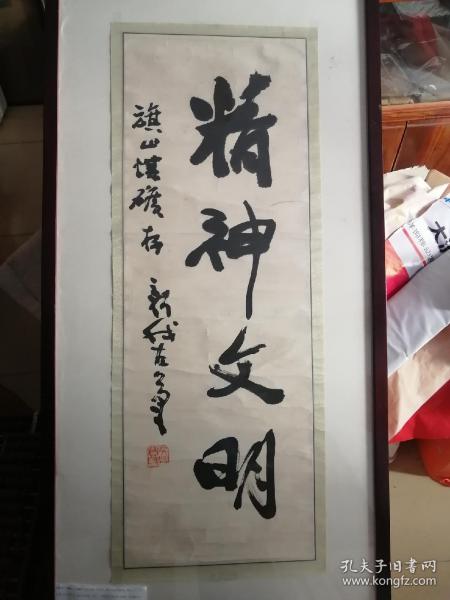 精神文明
旗山煤矿存
孔夫子旧书网
www.kongfz.com